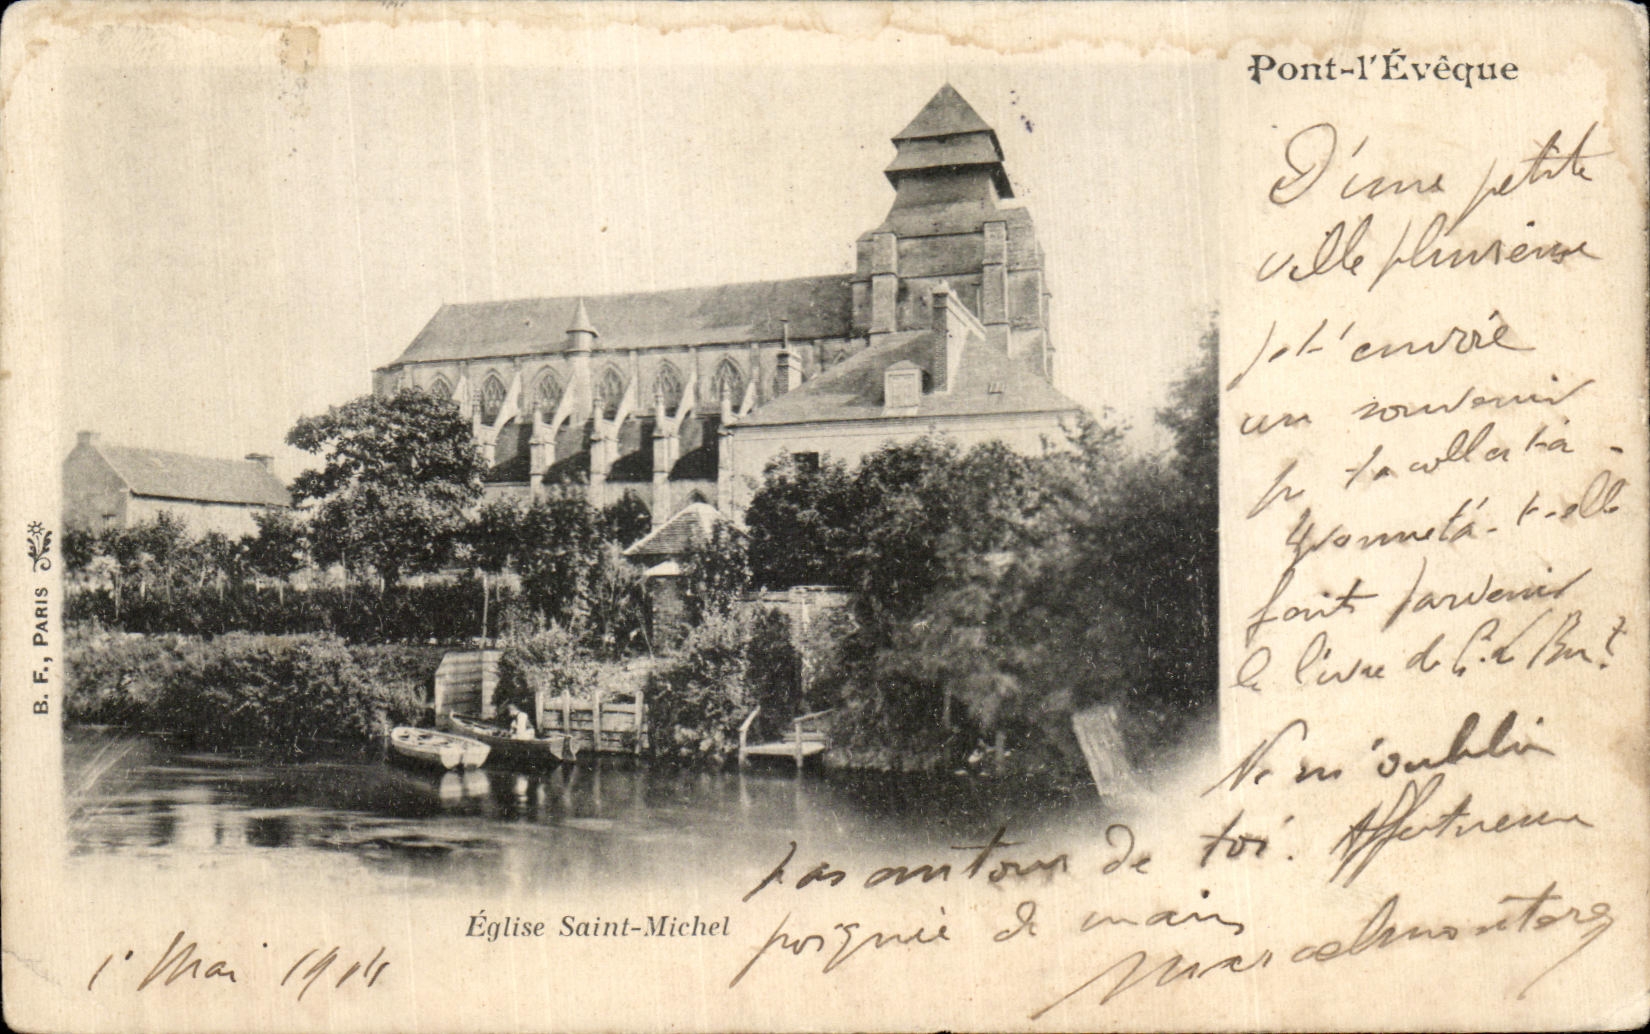 Pont-l'Évêque
D'une petite
ville pluvieuse
je t'envoie
un souvenir
pr ta collectio-
Yvonne t'a-t-elle
fait parvenir
le livre de
Ne m'oublie
pas autour de toi. Affectueuse
poignée de main
Église Saint-Michel
1r Mai 19
B. F., PARIS